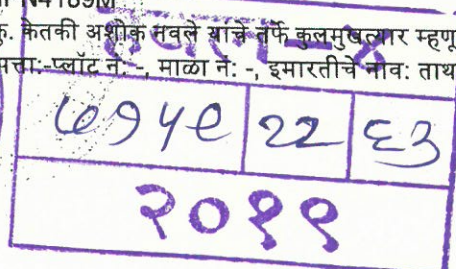 N4169M
कु. केतकी अशोक नवले यांचे तर्फे कुलमुखत्यार म्हणू
पत्ता:-प्लॉट नं: -, माळा नं: -, इमारतीचे नाव: ताथ
७१५९ २२ ६३
२०१९